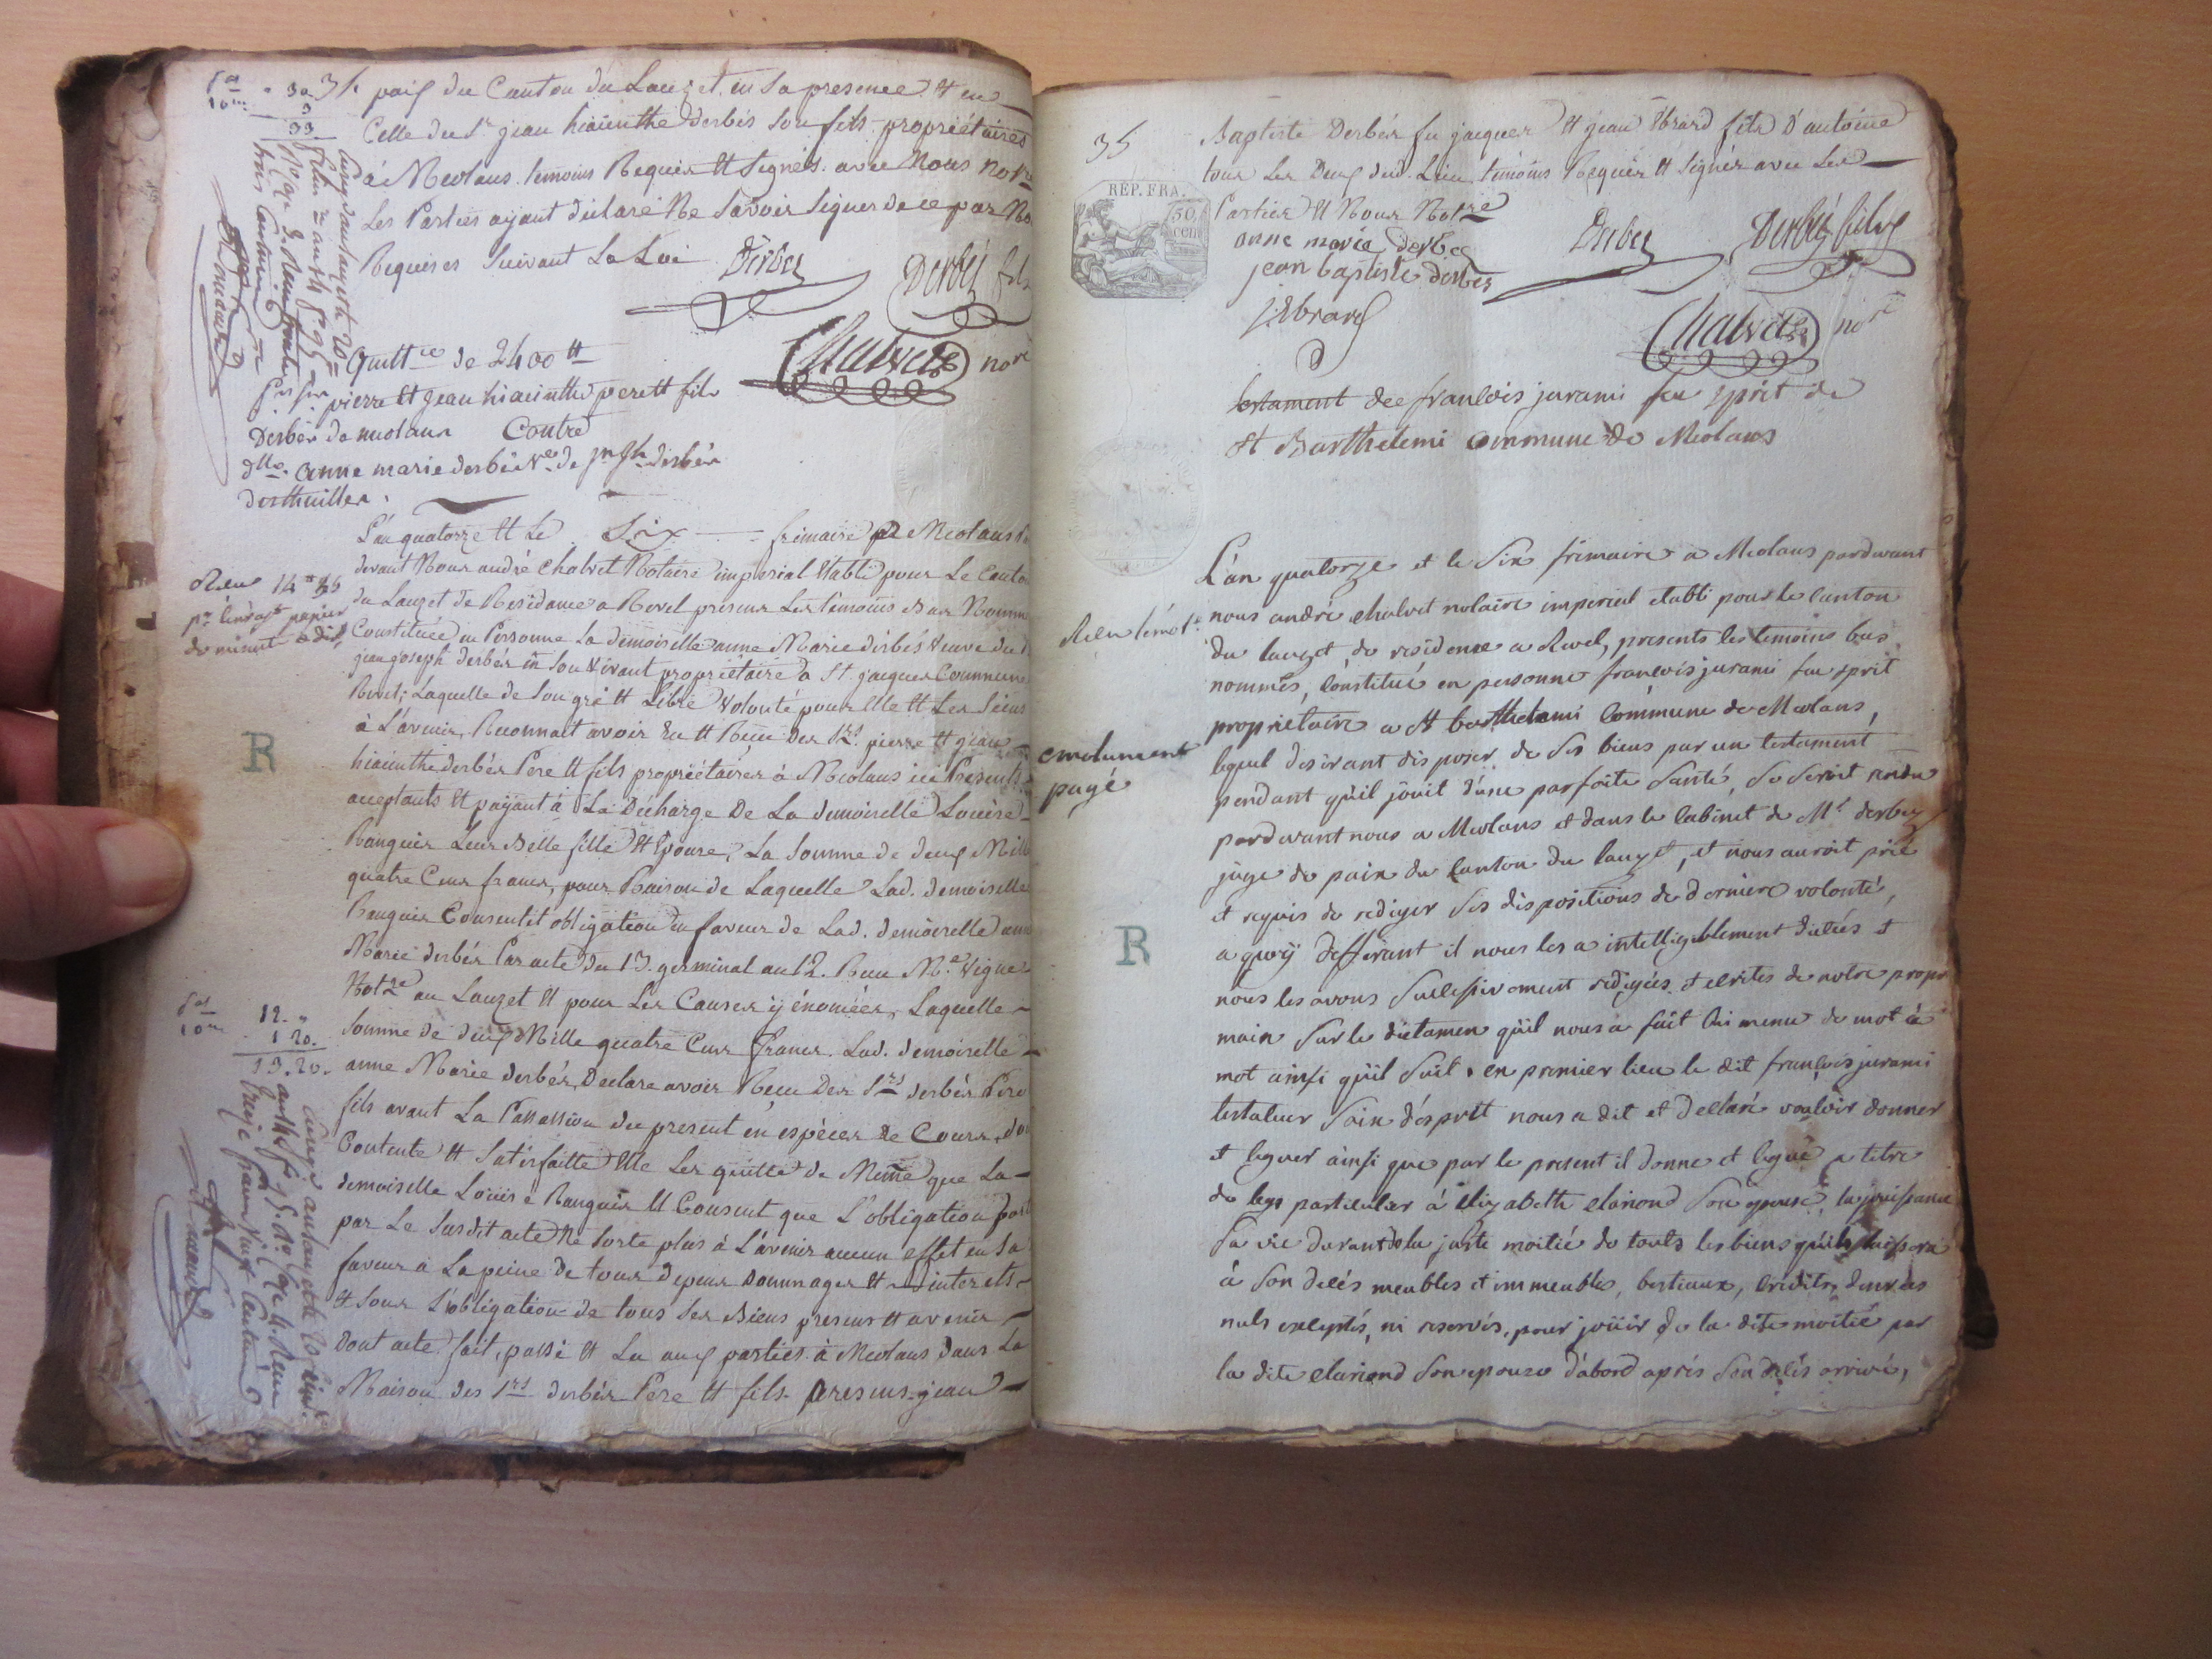 34 paix du Canton du Lauzet, en sa presence et en
Celle du Sr jean hiacinthe derbés son fils propriétaires
à Meolans. temoins Requis et signés avec Nous Notre
Les Parties ayant déclaré Ne Savoir Signer de ce par No
Requises Suivant La Loi
Derbez
Derbéz fils
Chalvet
nore
Quittce de 2400 tt
pierre et jean hiacinthe pere et fils
Derbés de meolans Contre
dlle anne marie derbés ve de jn jh derbés
desthuilles.
L'an quatorze et Le Six frimaire a Meolans P
devant Nous andré Chalvet Notaire imperial etabli pour Le Canton
du Lauzet de Residance a Revel presens Les témoins Bas Nommé
Constituée en Personne La demoiselle anne Marie derbés Veuve du d
jean joseph derbés en Son Vivant proprietaire a St jacques Commune
Revel; Laquelle de Son gré et Libre Volonté pour Elle et Les Siens
à L'avenir, Reconnait avoir Eu et Recu Des Srs pierre et jean
hiacinthe derbés Pere et fils propriétaires à Meolans ici Presents
acceptants et payant à La Décharge De La demoiselle Louise
Ranguis Leur Belle fille et Epouse, La Somme de deux Mille
quatre Cens francs, pour Raison de Laquelle Lad. demoiselle
Ranguis Consentit obligation en faveur de Lad. demoiselle anne
Marie derbés Par acte du 13. germinal an 12. Recu Me. Vigne
Notre au Lauzet et pour Les Causes y énoncées, Laquelle
Somme de deux Mille quatre Cens francs. Lad. demoiselle
anne Marie derbés, Declare avoir Recu Des Srs derbés Pere
fils avant La Passassion du present en espèces de Cours, do
Contente et Satisfaitte Elle Les quitte de Meme que La
demoiselle Louise Ranguis et Consent que L'obligation port
par Le Susdit acte Ne Sorte plus à L'avenir aucun effet en Sa
faveur à La peine de tous depens dommages et interets
et Sous L'obligation de tous Ses Biens presens et avenir
dont acte fait, passé et Lu aux parties à Meolans dans La
Maison des Srs derbés Pere et fils. presens jean
30
3
33
Rien
14
R
12. "
1 20.
13. 20.
35
Baptiste Derbés fu jacques et jean Ebrard fils d'antoine
tous Les Deux dud. Lieu témoins Requis et Signés avec Les
Parties et Nous Notre
RÉP. FRA.
50
cen
anne marie derbes
jean baptiste derbes
Derbez
Derbéz fils
J Ebrard
Chalvet
nore
testament de francois jurami feu sprit de
st Barthelemi commune de Meolans
L'an quatorze et le Six frimaire a Meolans pardevant
nous andré chalvet notaire imperial etabli pour le canton
du lauzet, de residence a Revel, presents les temoins bas
nommés, constitué en personne francois jurami feu sprit
proprietaire a st barthelemi Commune de Meolans,
lequel desirant disposer de Ses biens par un testament
pendant qu'il jouit d'une parfaite Santé, Se Seroit rendu
pardevant nous a Meolans et dans le Cabinet de Mr derbez
juge de paix du Canton du lauzet, et nous auroit prié
et requis de rediger Ses dispositions de derniere volonté,
a quoy defferant il nous les a intelligiblement dictées et
nous les avons Successivement redigées et ecrites de notre propre
main Sur le dictamen qu'il nous a fait lui meme de mot à
mot ainsi qu'il Suit. en premier lieu le dit francois jurami
testateur Sain d'esprit nous a dit et declaré vouloir donner
et leguer ainsi que par le present il donne et legue a titre
de legs particulier à Elizabeth clariond Son epouse, la jouissance
Sa vie durant de la juste moitié de touts les biens qu'il laissera
à Son decés meubles et immeubles, bestiaux, credits, denrées
nuls exceptés, ni reservés, pour jouir de la dite moitié par
la dite clariond Son epouse d'abord aprés Son decés arrivé,
Rien
emolument
payé
R